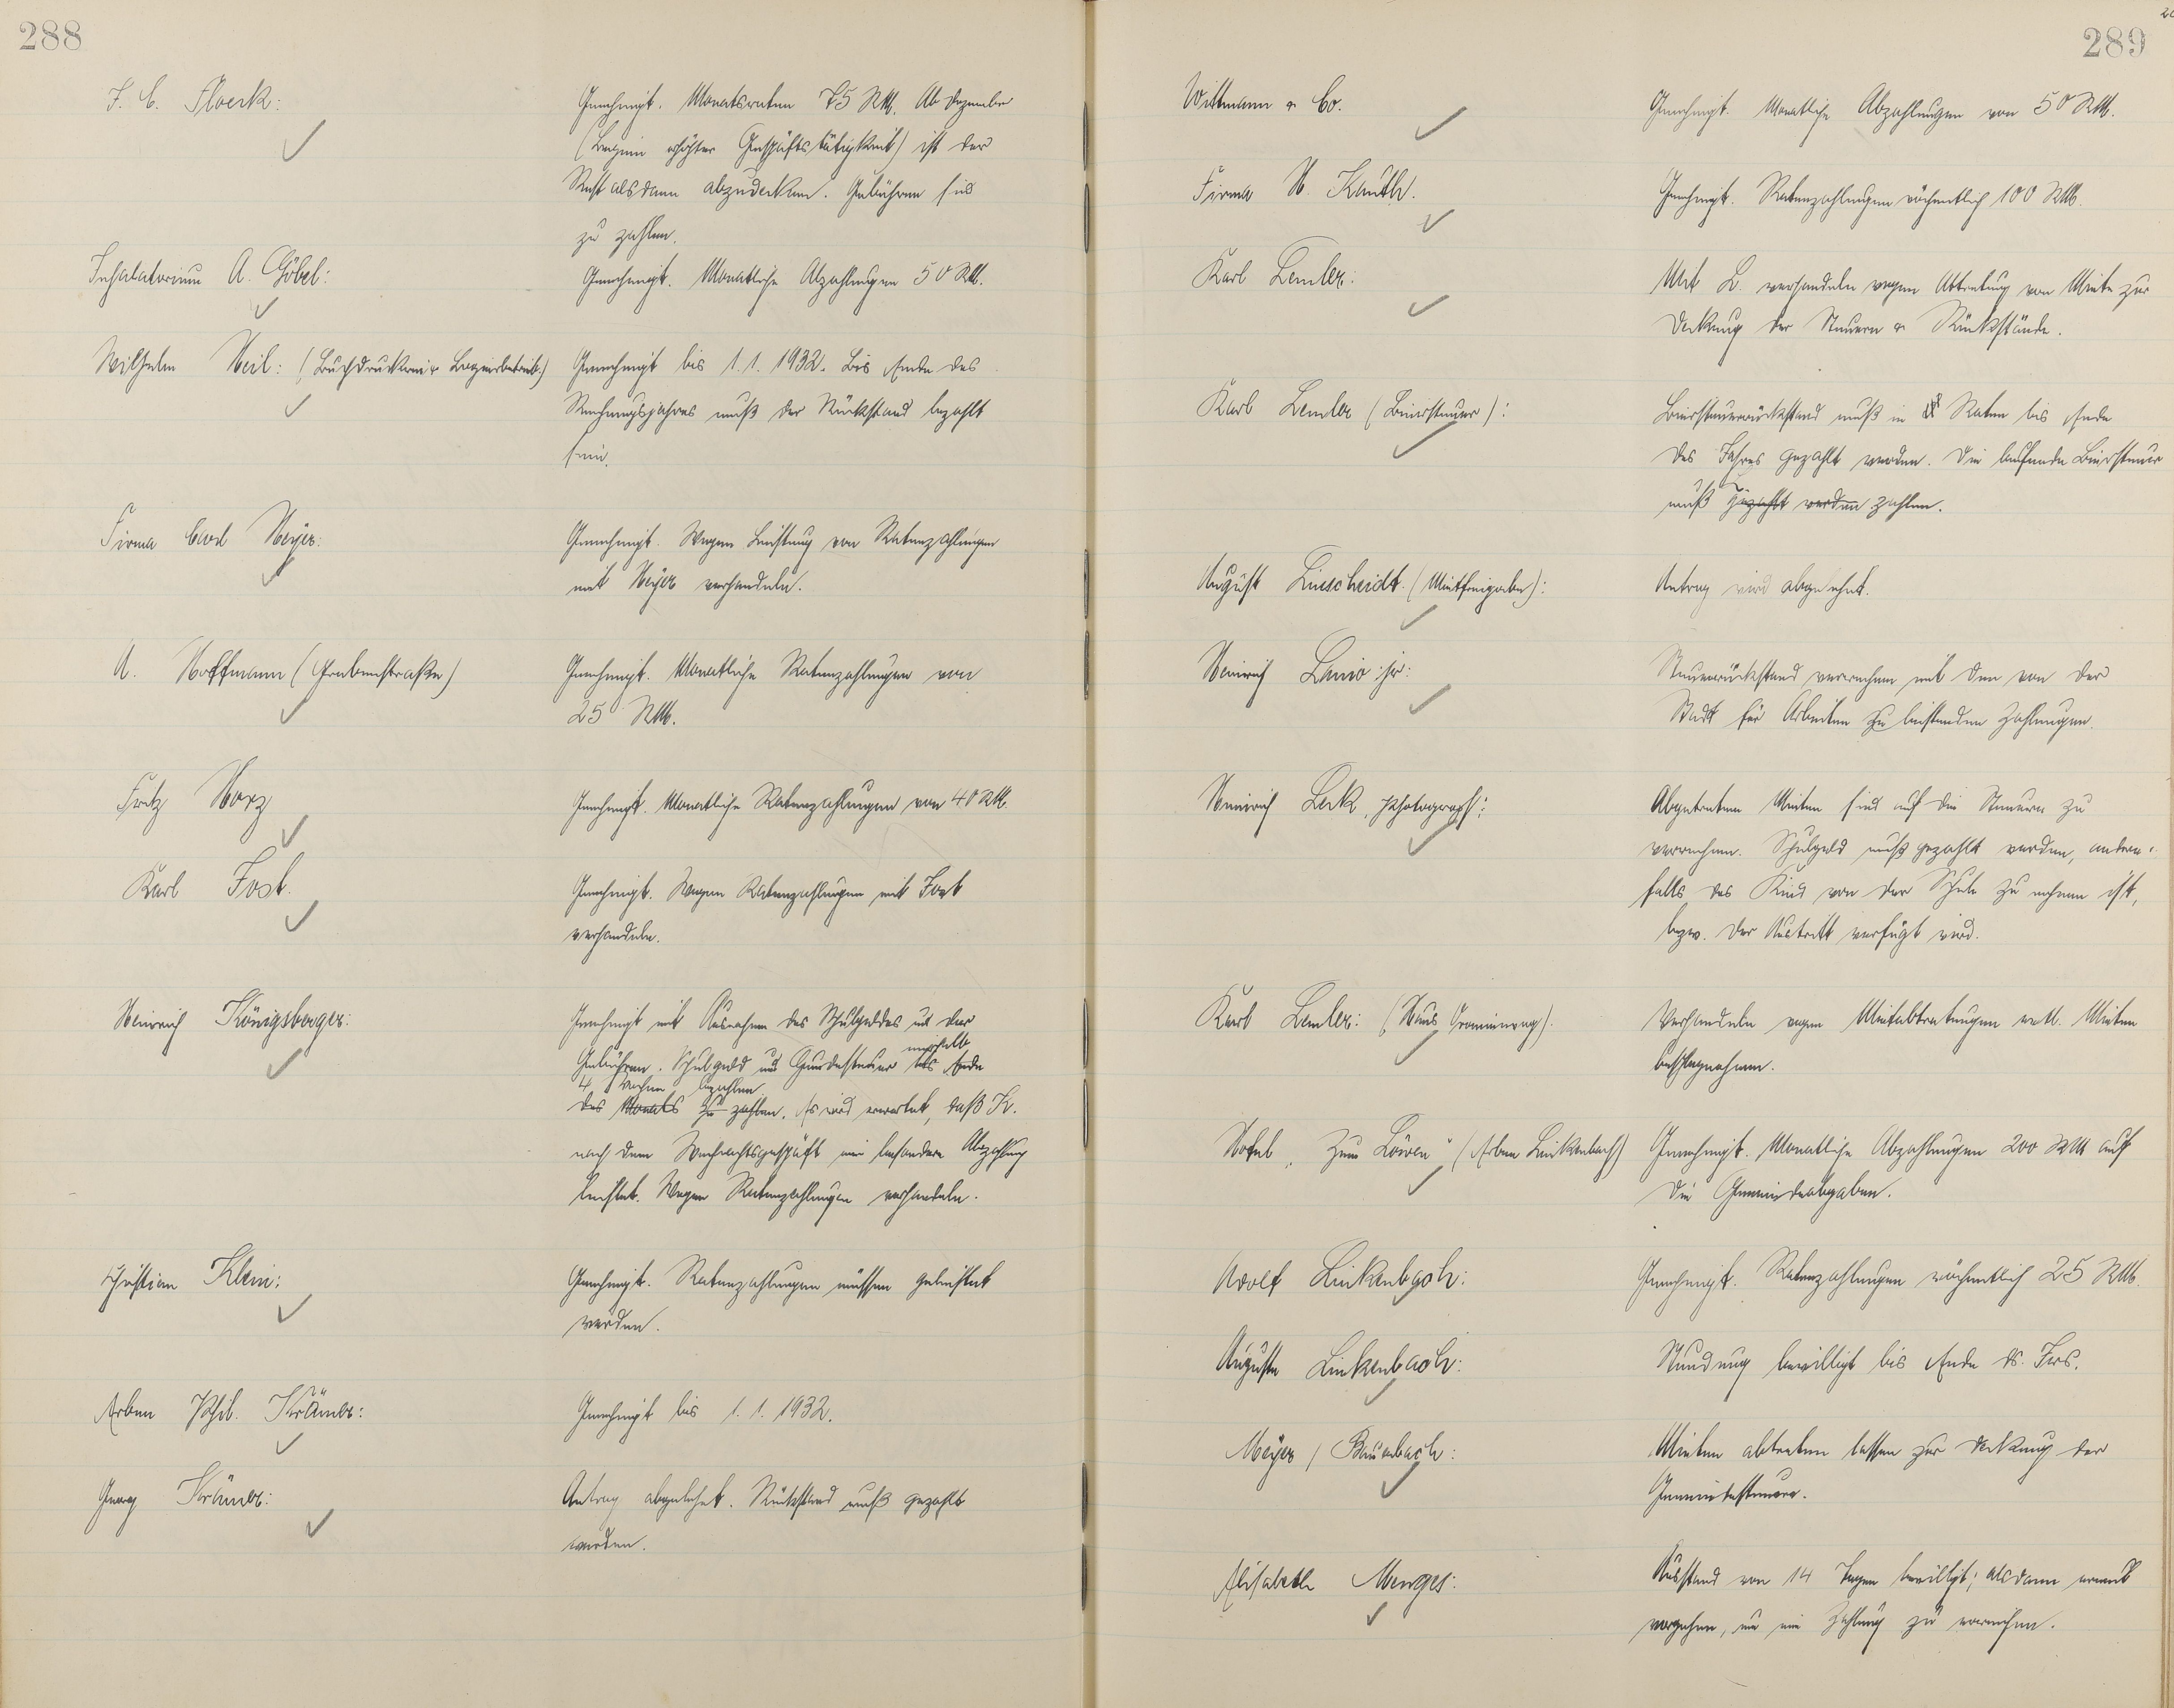 288
F. C. Floeck:
Genehmigt. Monatsraten 75 RM. Ab Dezember
(Beginn erhöhter Geschäftstätigkeit) ist der
Rest alsdann abzudecken. Gebühren sind
zu zahlen.
Inhalatorium A. Göbel:
Genehmigt. Monatliche Abzahlungen 50 RM.
Wilhelm Heil: (Buchdruckerei u.
Genehmigt bis 1.1.1932. Bis Ende des
Rechnungsjahres muß der Rückstand bezahlt
sein.
Firma Carl Heyer:
Genehmigt. Wegen Leistung von Ratenzahlungen
mit Heyer verhandeln.
A. Hoffmann (Grabenstraße)
Genehmigt. Monatliche Ratenzahlungen von
25 RM.
Fritz Horz
Genehmigt. Monatliche Ratenzahlungen von 40 RM.
Karl Jost.
Genehmigt. Wegen Ratenzahlungen mit Jost
verhandeln.
Heinrich Königsberger:
Genehmigt mit Ausnahme des Schulgeldes und der
Gebühren. Schulgeld und Hundesteuer innerhalb bis Ende
4 Wochen bezahlen
des Monats zu zahlen. Es wird erwartet, daß K.
nach dem Weihnachtsgeschäft eine besondere Abzahlung
leistet. Wegen Ratenzahlungen verhandeln.
Christian Klein:
Genehmigt. Ratenzahlungen müssen geleistet
werden.
Erben Phil. Krämer:
Genehmigt bis 1.1.1932.
Georg Krämer:
Antrag abgelehnt. Rückstand muß gezahlt
werden.
289
Wittmann & Co.
Genehmigt. Monatliche Abzahlungen von 50 RM.
Firma H. Kauth.
Genehmigt. Ratenzahlungen wöchentlich 100 RM.
Karl Lemler:
Mit L. verhandeln wegen Abtretung von Miete zur
Deckung der Steuern & Rückstände.
Karl Lemler (Biersteuer):
Biersteuerrückstand muß in Raten bis Ende
des Jahres gezahlt werden. Die laufende Biersteuer
muß gezahlt werden zahlen.
August Linscheidt. (Mietfreigabe):
Antrag wird abgelehnt.
Heinrich Lanio jr:
Steuerrückstand verrechnen mit den von der
Stadt für Arbeiten zu leistenden Zahlungen.
Heinrich Leck, Photograph:
Abgetretene Mieten sind auf die Steuern zu
verrechnen. Schulgeld muß gezahlt werden, andern-
falls das Kind von der Schule zu nehmen ist,
bezw. der Austritt verfügt wird.
Karl Lemler: (Haus Oranienweg).
Verhandeln wegen Mietabtretungen evtl. Mieten
beschlagnahmen.
Hotel „Zum Löwen" (Erben Linkenbach)
Genehmigt. Monatliche Abzahlungen 200 RM auf
die Gemeindeabgaben.
Adolf Linkenbach:
Genehmigt. Ratenzahlungen wöchentlich 25 RM.
Auguste Linkenbach:
Stundung bewilligt bis Ende ds. Jrs.
Meyer / Bauerbach:
Mieten abtreten lassen zur Deckung der
Gemeindesteuern.
Elisabeth Menges:
Ausstand von 14 Tagen bewilligt; alsdann erneut
vorgehen, um eine Zahlung zu erreichen.